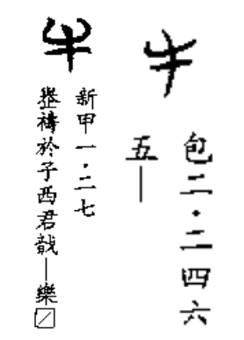 牛
包二·二四六
五—
牛
新甲一·二七
禱於子西君戠—樂☐